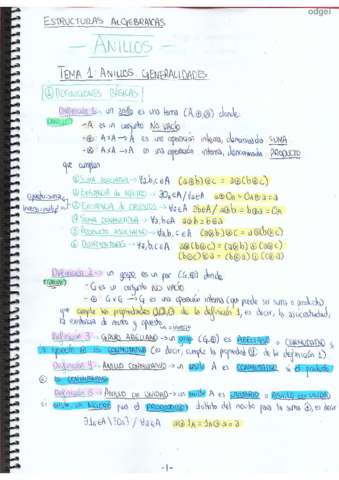 odgei
ESTRUCTURAS ALGEBRAICAS
— ANILLOS —
TEMA 1: ANILLOS. GENERALIDADES
① DEFINICIONES BÁSICAS
Definición 1 → un anillo es una terna (A,⊕,⊗) donde:
ANILLO
- A es un conjunto NO VACÍO
- ⊕ A×A → A es una operación interna, denominada SUMA
- ⊗ A×A → A es una operación interna, denominada PRODUCTO
que cumplan
① SUMA ASOCIATIVA → ∀a,b,c∈A (a⊕b)⊕c = a⊕(b⊕c)
② EXISTENCIA DE NEUTRO → ∃0A∈A/∀a∈A a⊕0A = 0A⊕a = a
③ EXISTENCIA DE OPUESTOS → ∀a∈A ∃b∈A/ a⊕b = b⊕a = 0A
④ SUMA CONMUTATIVA → ∀a,b∈A a⊕b = b⊕a
⑤ PRODUCTO ASOCIATIVO → ∀a,b,c∈A (a⊗b)⊗c = a⊗(b⊗c)
⑥ DISTRIBUTIVAS → ∀a,b,c∈A a⊗(b⊕c) = (a⊗b)⊕(a⊗c)
(b⊕c)⊗a = (b⊗a)⊕(c⊗a)
Definición 2 → un grupo es un par (G,⊕) donde
GRUPO
- G es un conjunto NO VACÍO
- ⊕: G×G → G es una operación interna (que puede ser suma o producto)
que cumple las propiedades ①,②,③ de la definición 1, es decir, la asociatividad,
la existencia de neutro y opuesto
Definición 3 → GRUPO ABELIANO → un grupo (G,⊕) es ABELIANO o CONMUTATIVO si
la operación ⊕ es CONMUTATIVA (es decir, cumple la propiedad ④ de la definición 1)
Definición 4 → ANILLO CONMUTATIVO → un anillo A es CONMUTATIVO si el producto
⊗ es CONMUTATIVO
Definición 5 → ANILLO CON UNIDAD → un anillo A es UNITARIO o ANILLO CON UNIDAD
si existe un NEUTRO para el PRODUCTO ⊗, distinto del neutro para la suma ⊕, es decir
∃1A∈A\{0A} / ∀a∈A a⊗1A = 1A⊗a = a
-1-